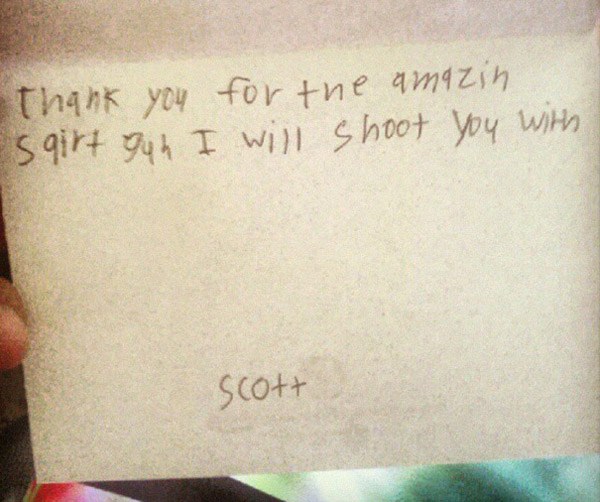 Thank you for the amazin
sqirt guh I will shoot you with
Scott